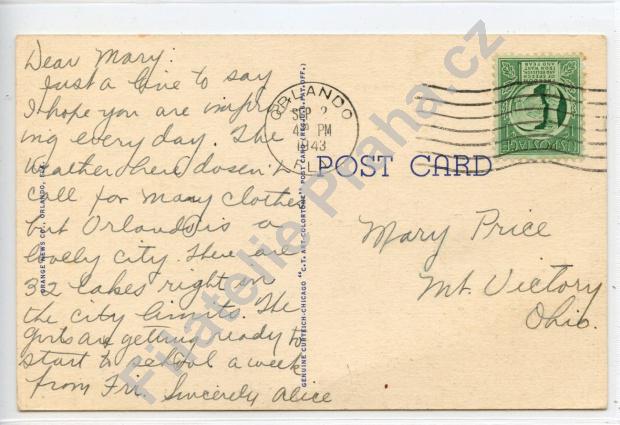 Dear Mary:
Just a line to say
I hope you are improv
ing every day. The
weather here dosen't
call for many clothes
but Orlando is a
lovely city. There are
32 lakes right in
the city limits. The
girls are getting ready to
start to school a week
from Fri. Sincerely Alice
ORANGE NEWS CO., ORLANDO, FLA.
GENUINE CURTEICH-CHICAGO "C.T. ART-COLORTONE" POST CARD (REG. U.S. PAT. OFF.)
ORLANDO
SEP 2
4 PM
1943
FLA.
POST CARD
U.S. POSTAGE
FREEDOM
OF SPEECH
AND RELIGION
FROM WANT
AND FEAR
Mary Price
Mt. Victory
Ohio.
Filatelie Praha.cz